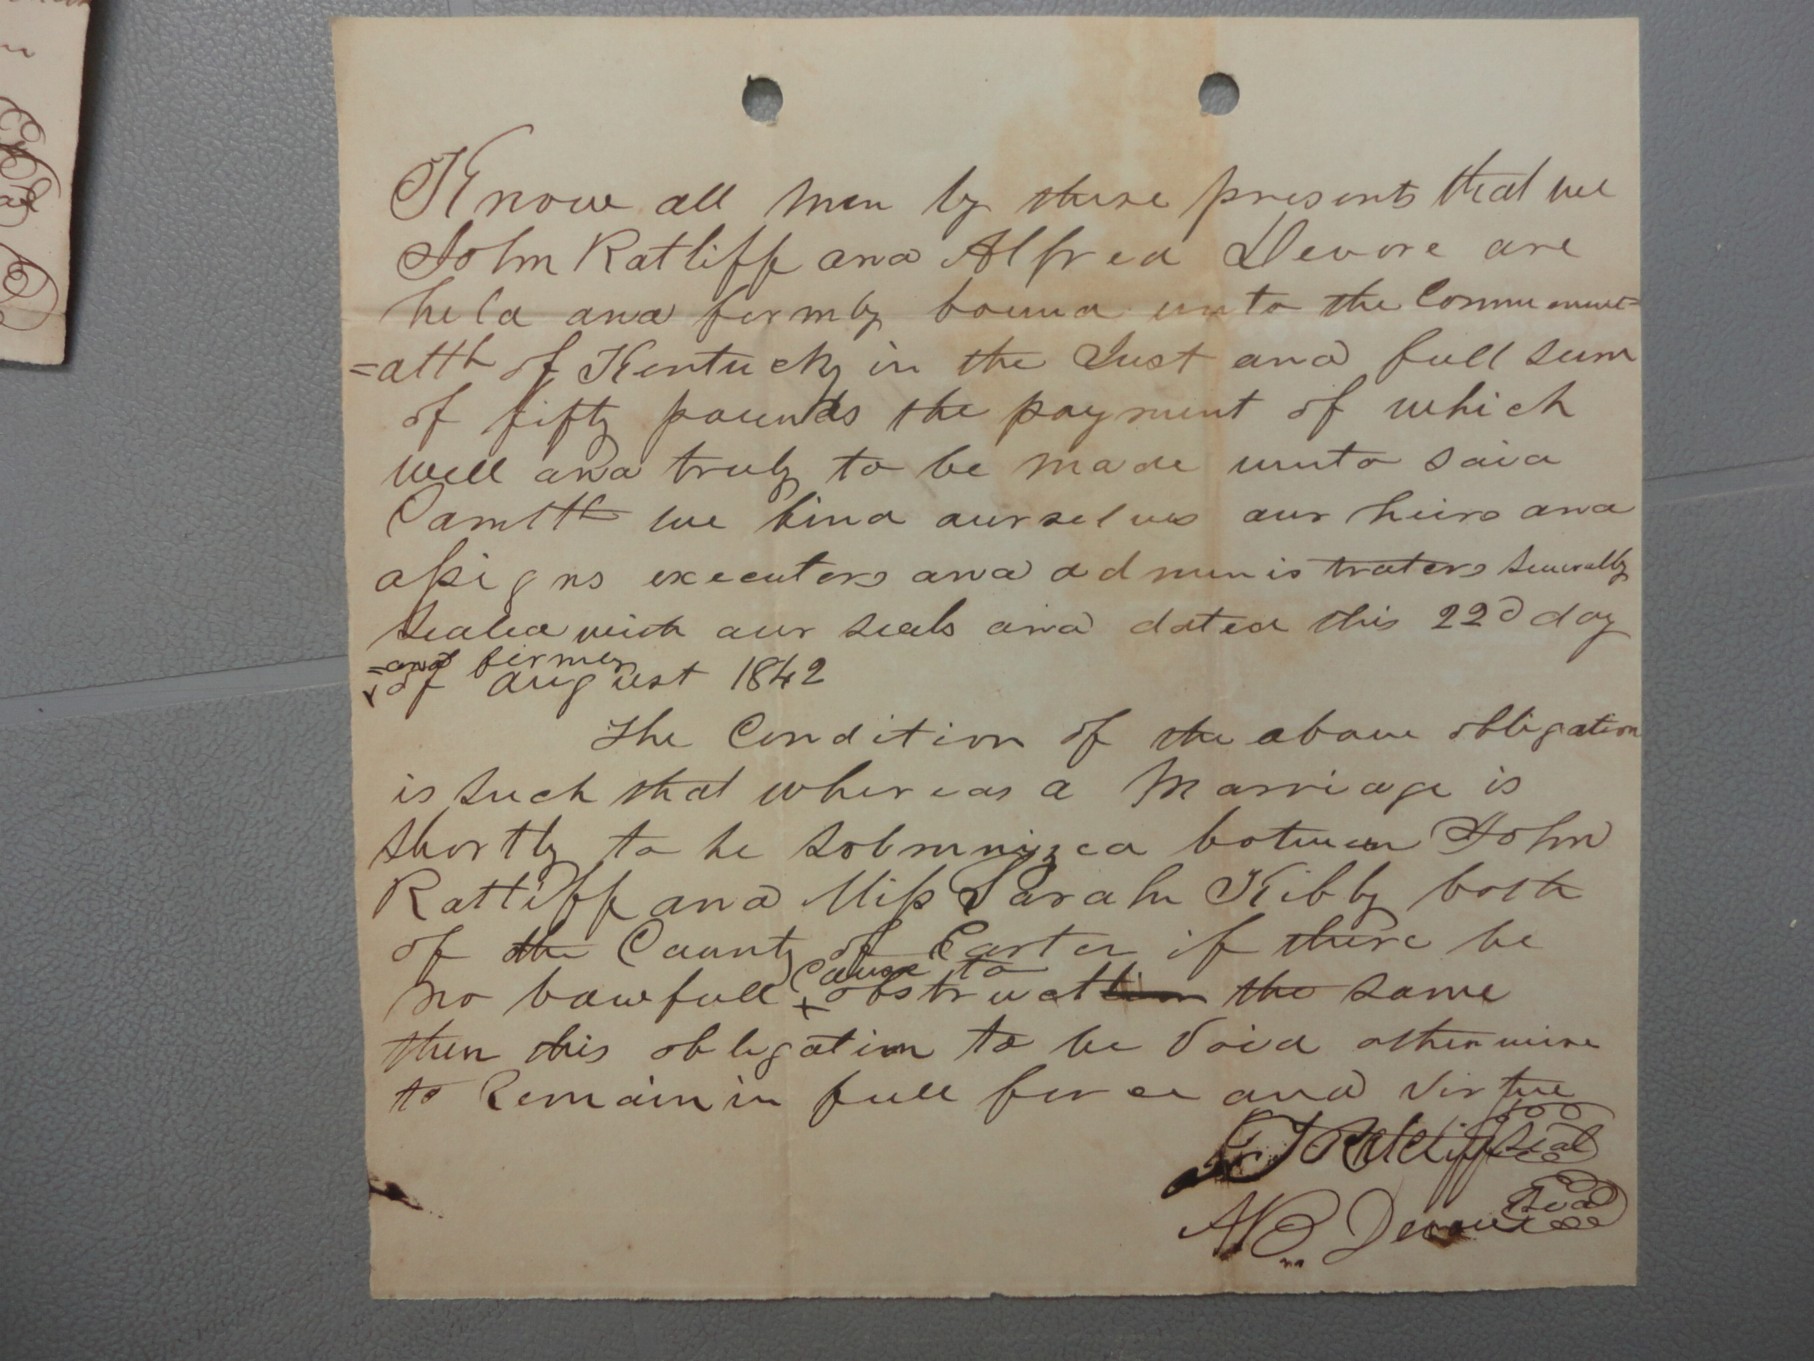 Know all men by these presents that we
John Ratliff and Alfred Devore are
held and firmly bound unto the Commonwe=
=alth of Kentucky in the Just and full sum
of fifty pounds the payment of which
well and truly to be made unto said
Comlth we bind ourselves our heirs and
assigns executors and administrators severally
=and firmly
sealed with our seals and dated this 22d day
of august 1842
The Condition of the above obligation
is such that whereas a Marriage is
shortly to be solemnized between John
Ratliff and Miss Sarah Kibby both
of the County of Carter if there be
no lawfull cause to obstruct the same
then this obligation to be Void otherwise
to Remain in full force and virtue
Ratcliff Seal
Devore Seal